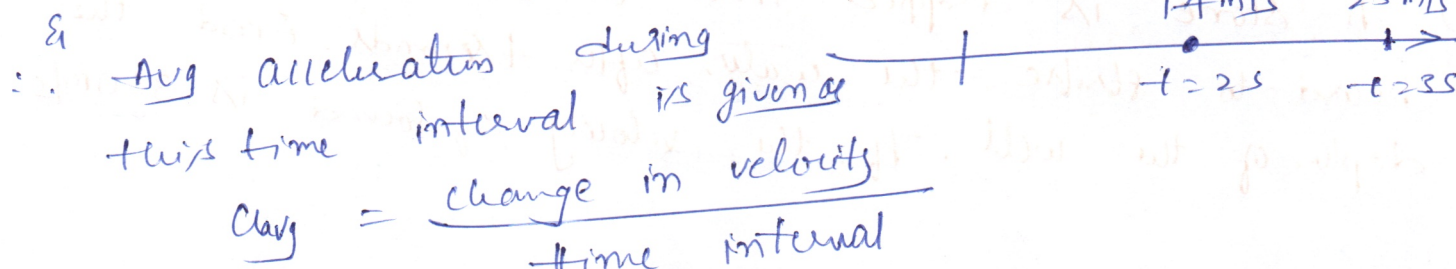 &
∴ Avg acceleration during
this time interval is given as
aavg = change in velocity
time interval
t=2s t=3s